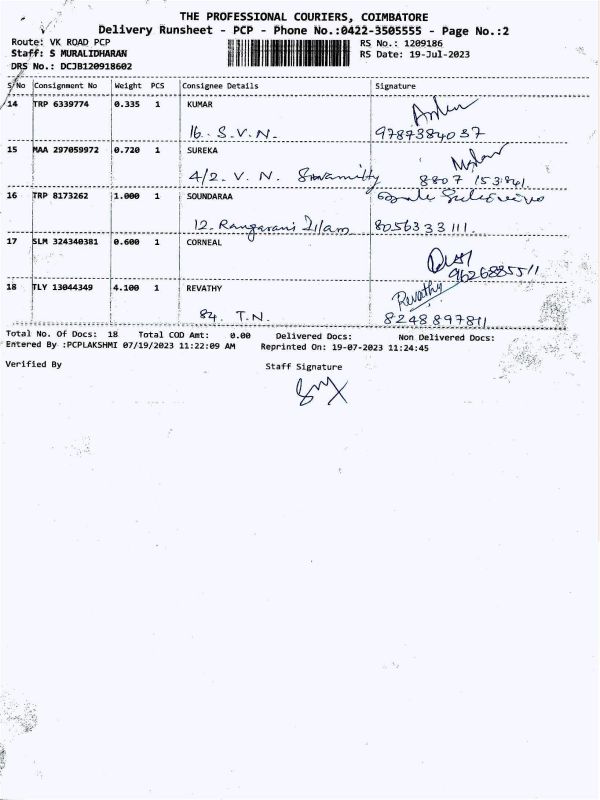 THE PROFESSIONAL COURIERS, COIMBATORE
Delivery Runsheet - PCP - Phone No.:0422-3505555 - Page No.:2
Route: VK ROAD PCP RS No.: 1209186
Staff: S MURALIDHARAN RS Date: 19-Jul-2023
DRS No.: DCJB120918602
S/No Consignment No Weight PCS Consignee Details Signature
14 TRP 6339774 0.335 1 KUMAR
16. S.V.N. 9787384037
15 MAA 297059972 0.720 1 SUREKA
4/2. V. N. 8807 153841.
16 TRP 8173262 1.000 1 SOUNDARAA
12. Rangarani Illam 8056333111.
17 SLM 324340381 0.600 1 CORNEAL
9626885511
18 TLY 13044349 4.100 1 REVATHY Revathy
84. T.N. 8248897811
Total No. Of Docs: 18 Total COD Amt: 0.00 Delivered Docs: Non Delivered Docs:
Entered By :PCPLAKSHMI 07/19/2023 11:22:09 AM Reprinted On: 19-07-2023 11:24:45
Verified By Staff Signature